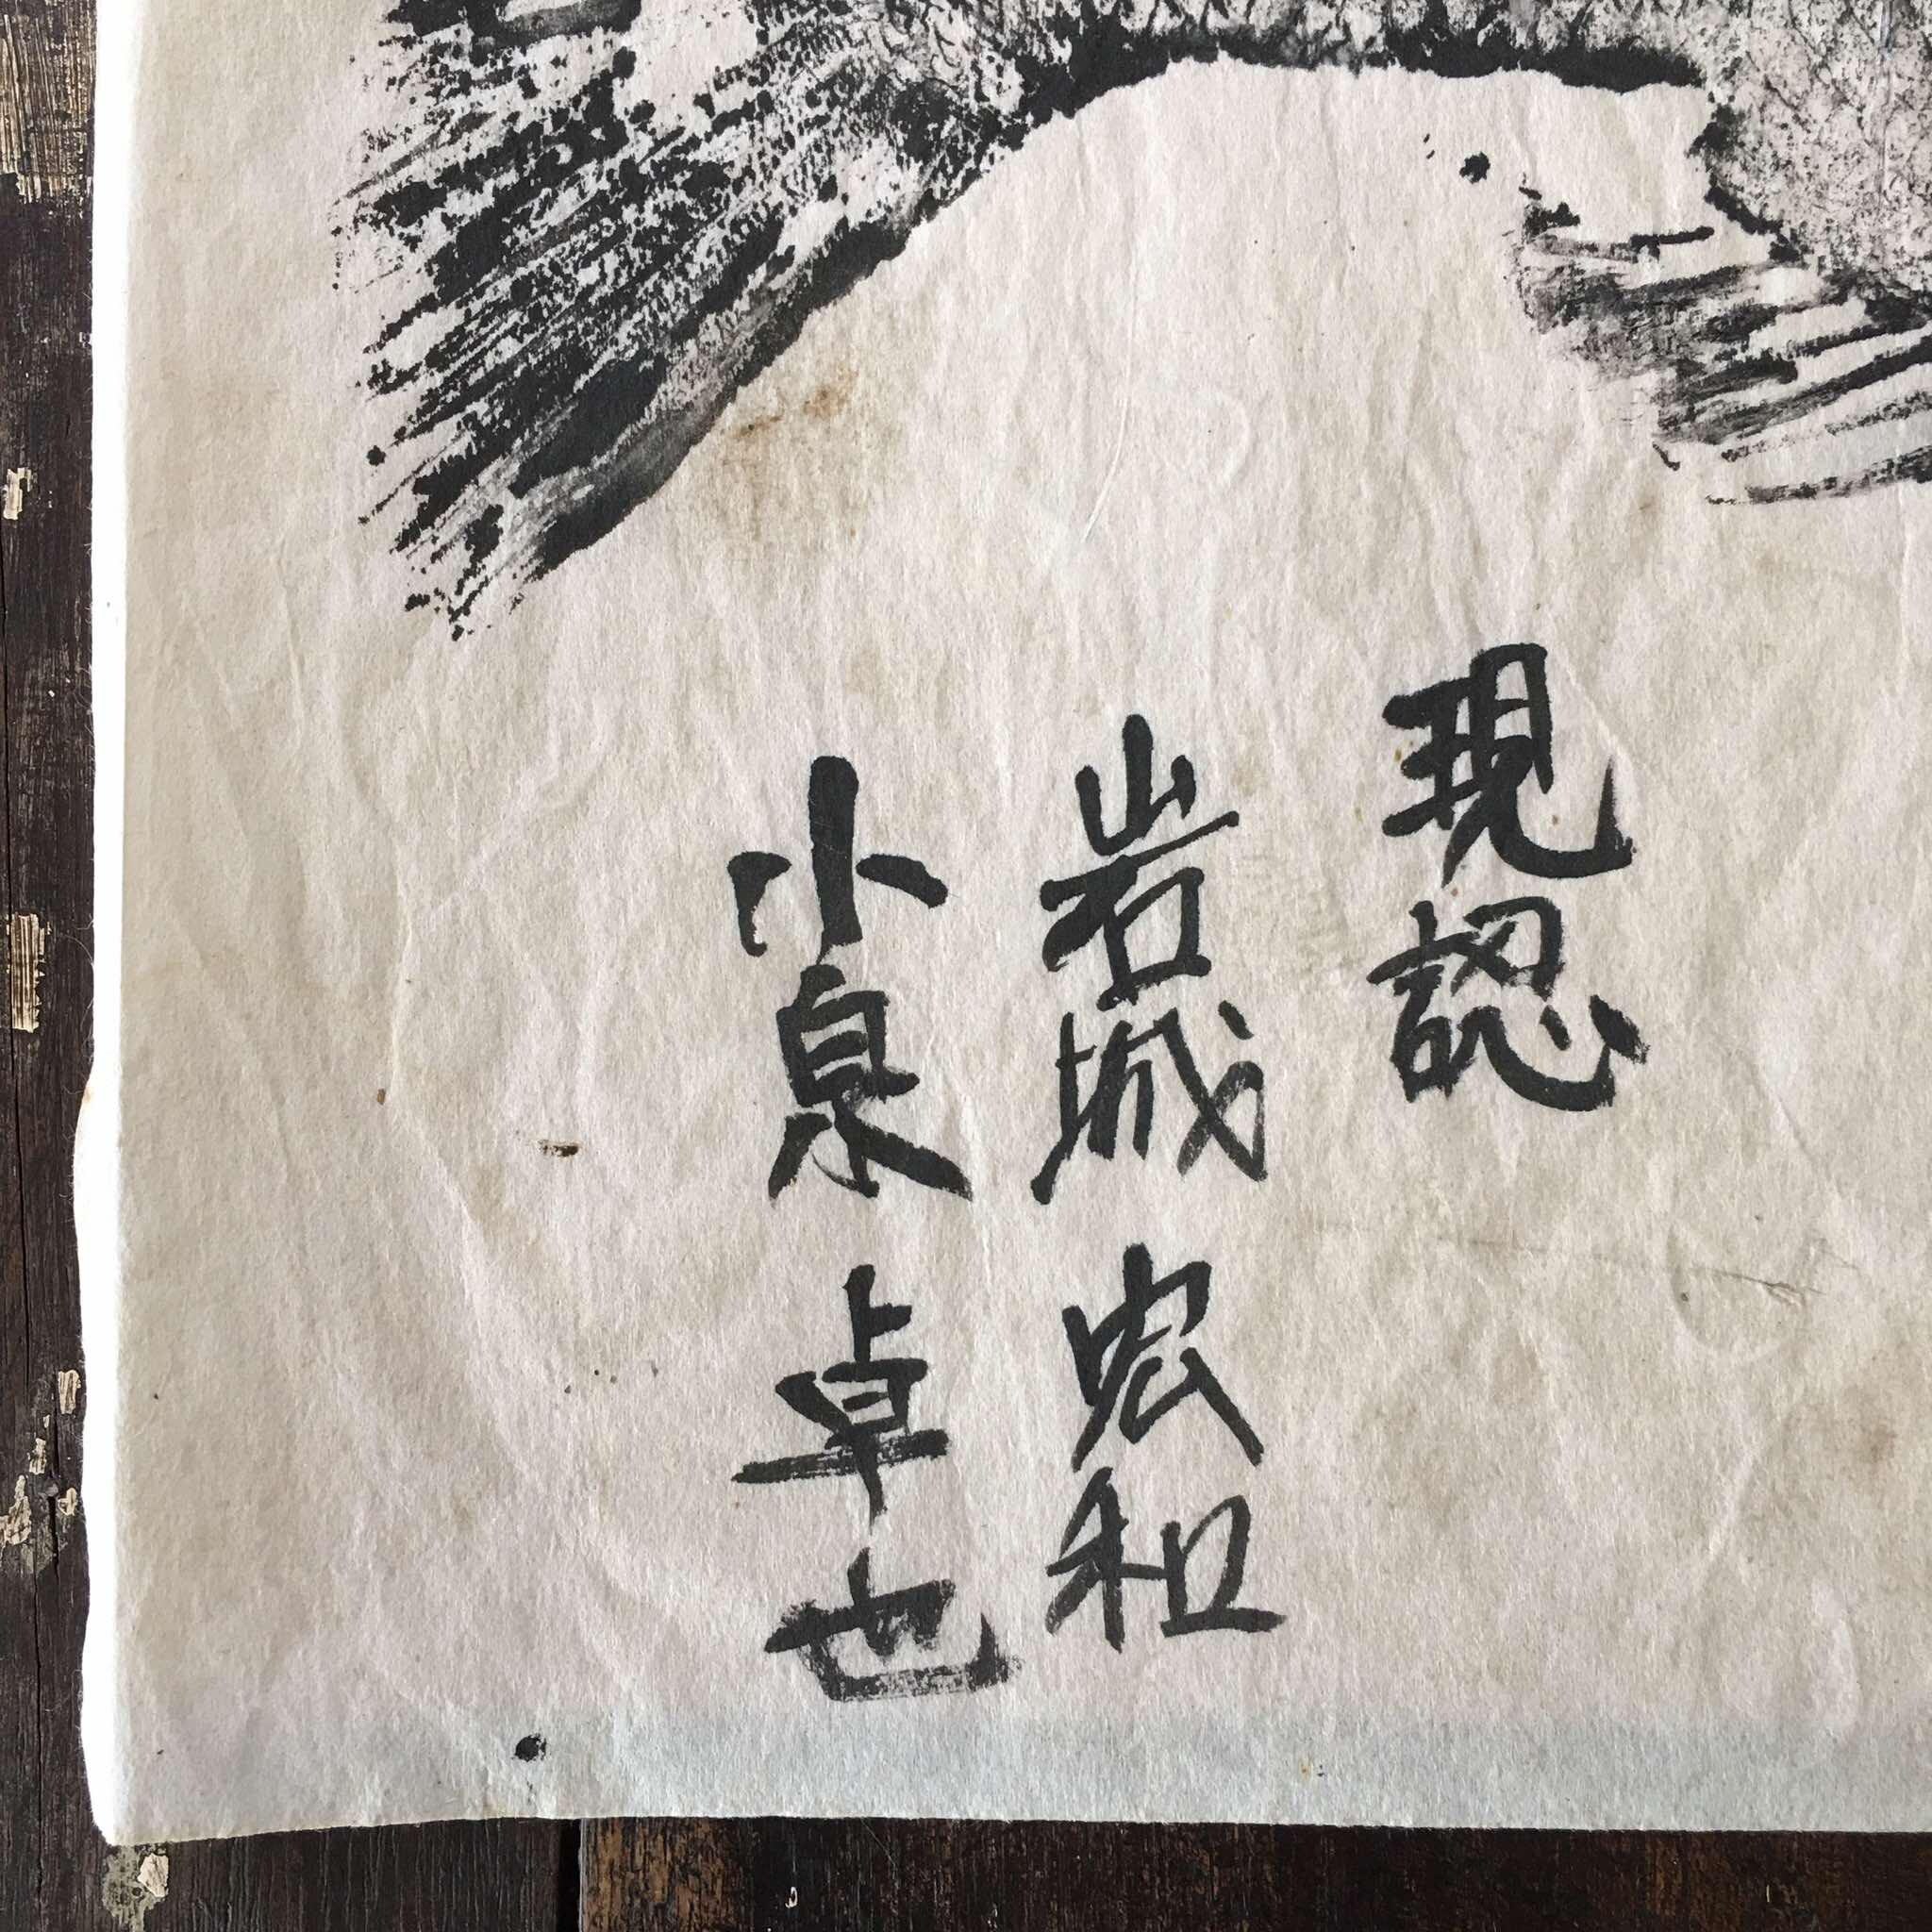 現認
岩城 宏和
小泉 卓也